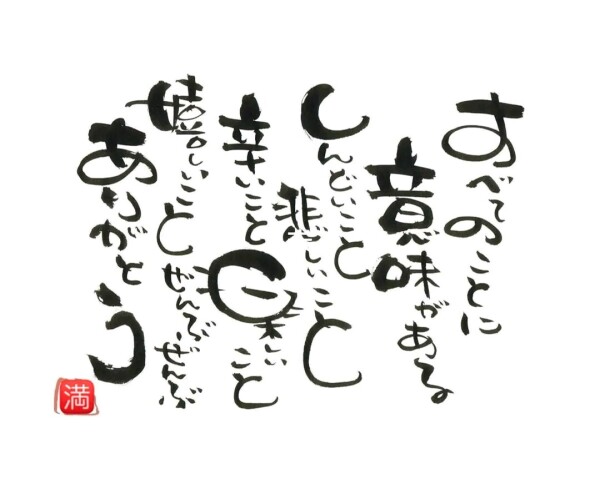 すべてのことに
意味がある
しんどいこと
悲しいこと
辛いこと
楽しいこと
嬉しいこと
ぜんぶぜんぶ
ありがとう
満